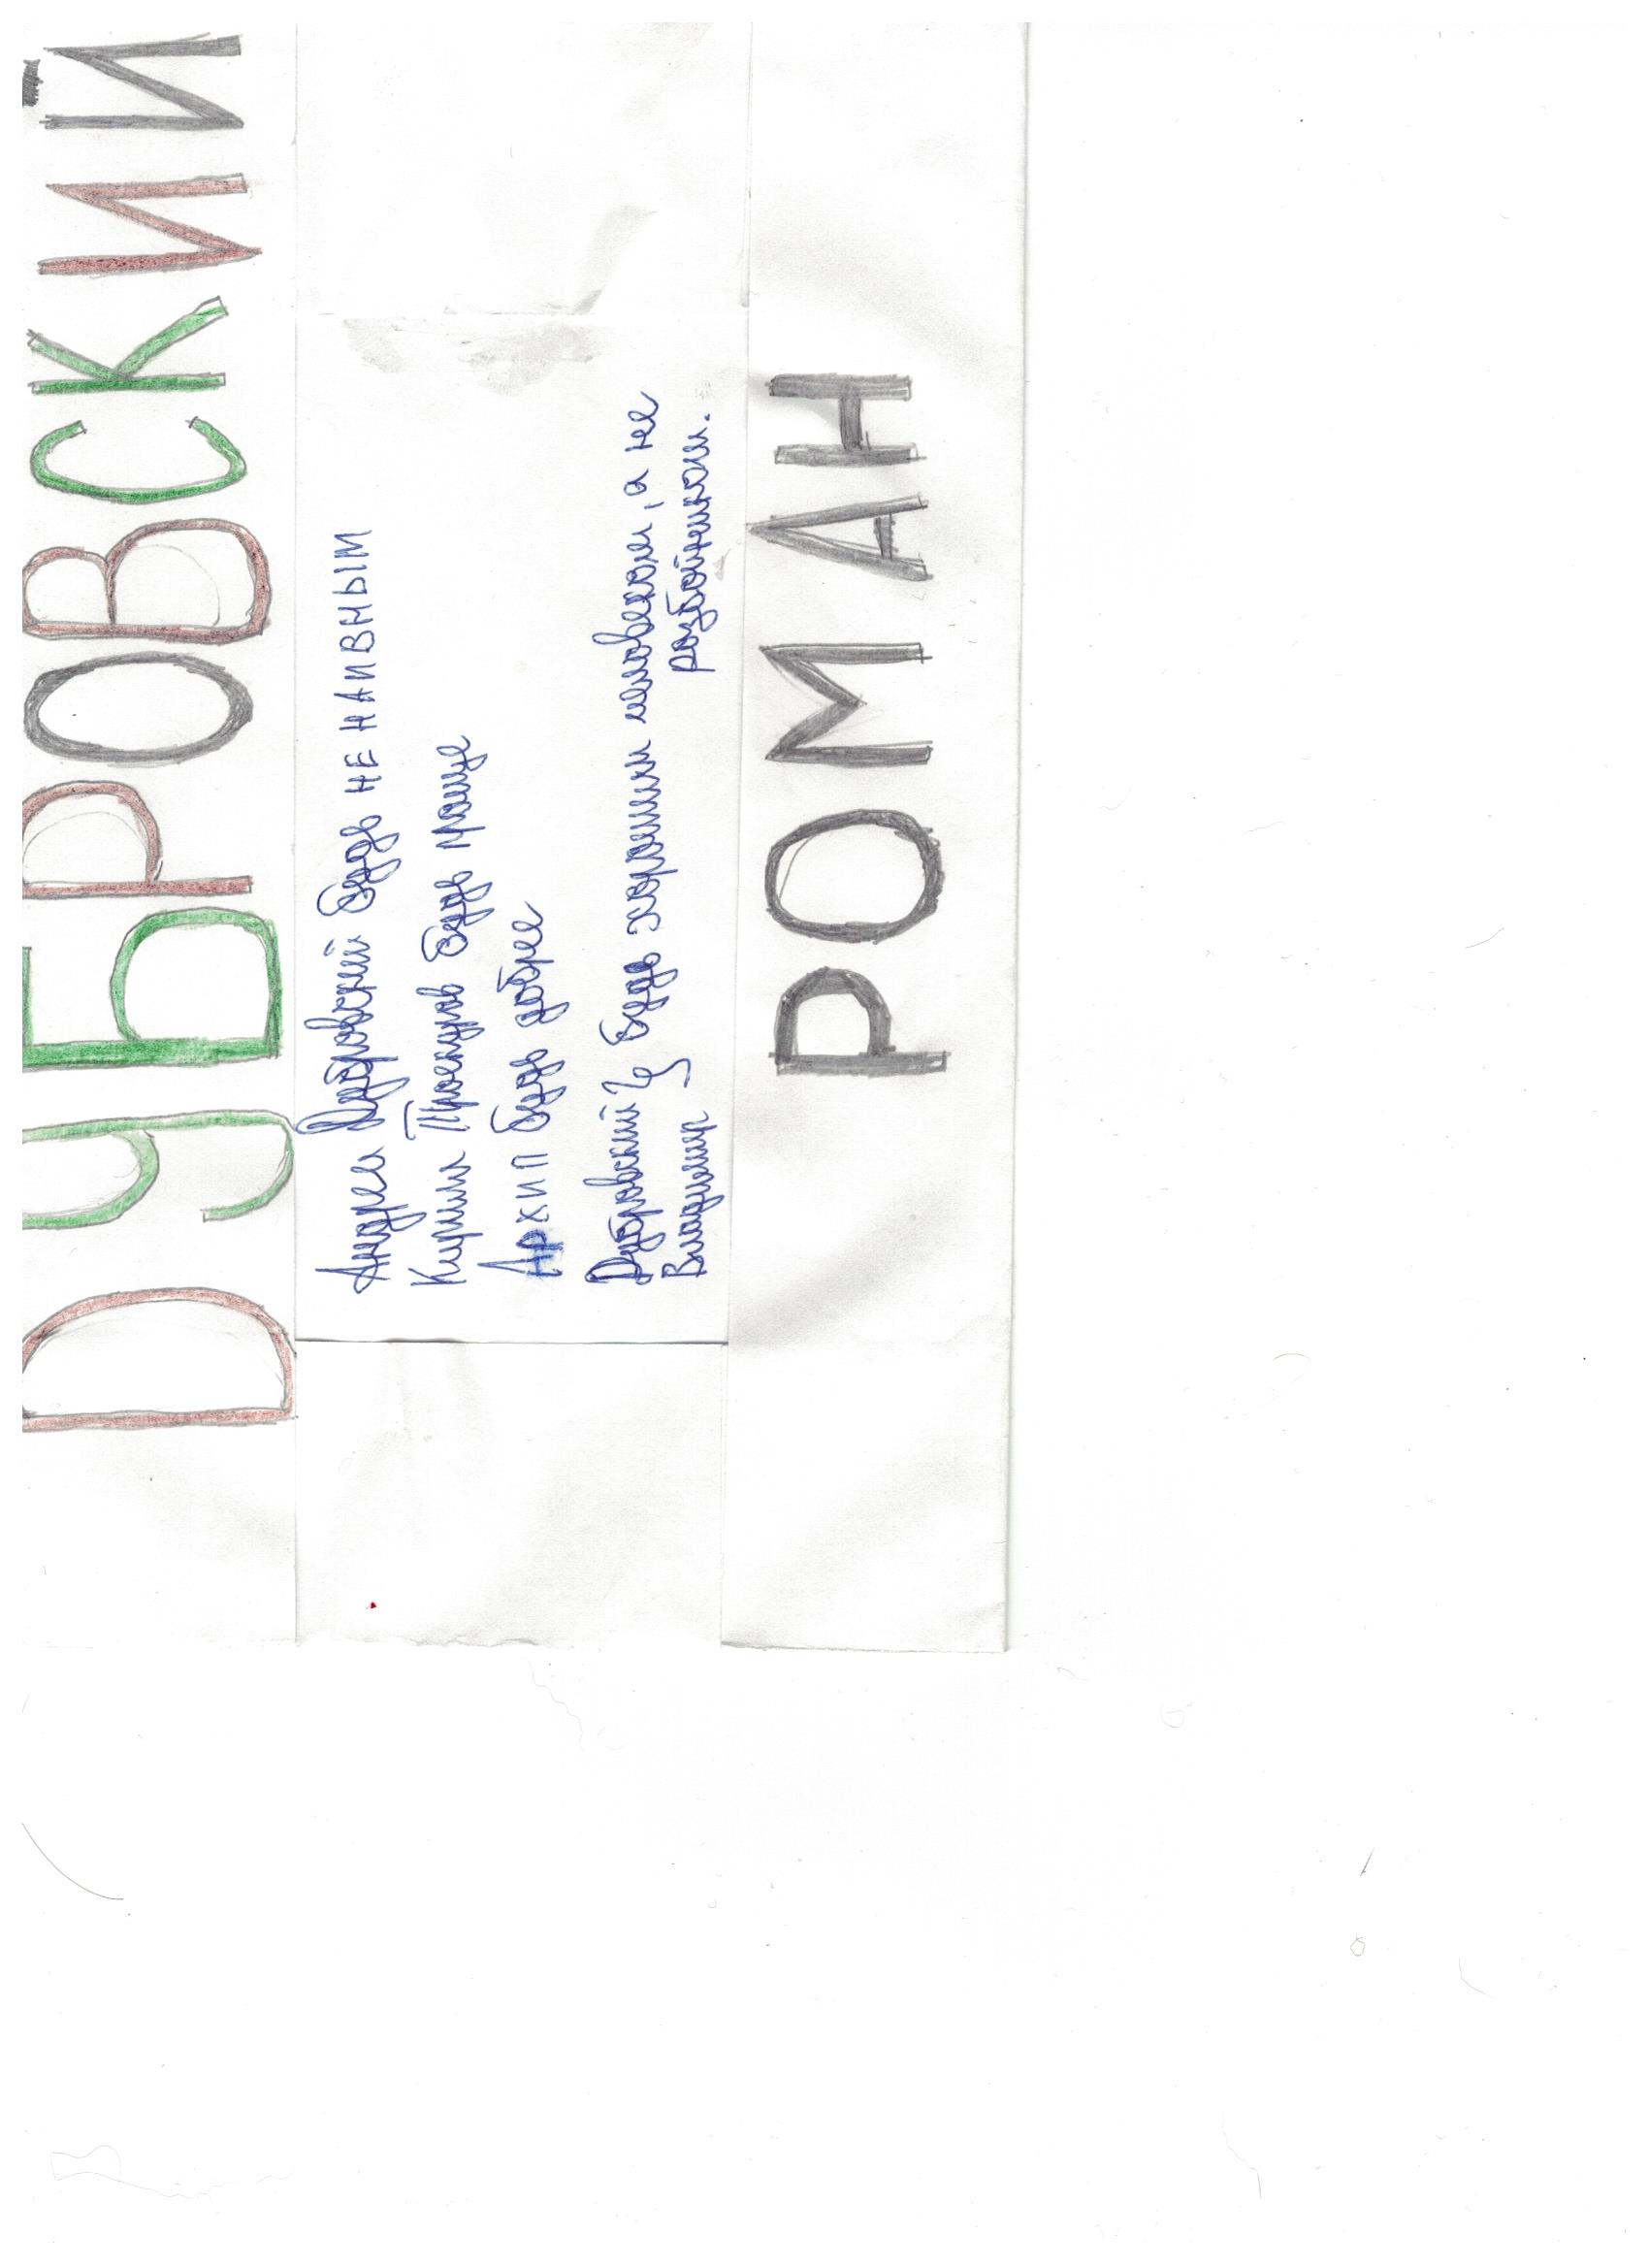 DУБРОВСКИЙ
Андрей Дубровский будь НЕ НАИВНЫМ
Кирилл Троекуров будь проще
Архип будь добрее
Дубровский } будь хорошим человеком, а не
Владимир разбойником.
РОМАН